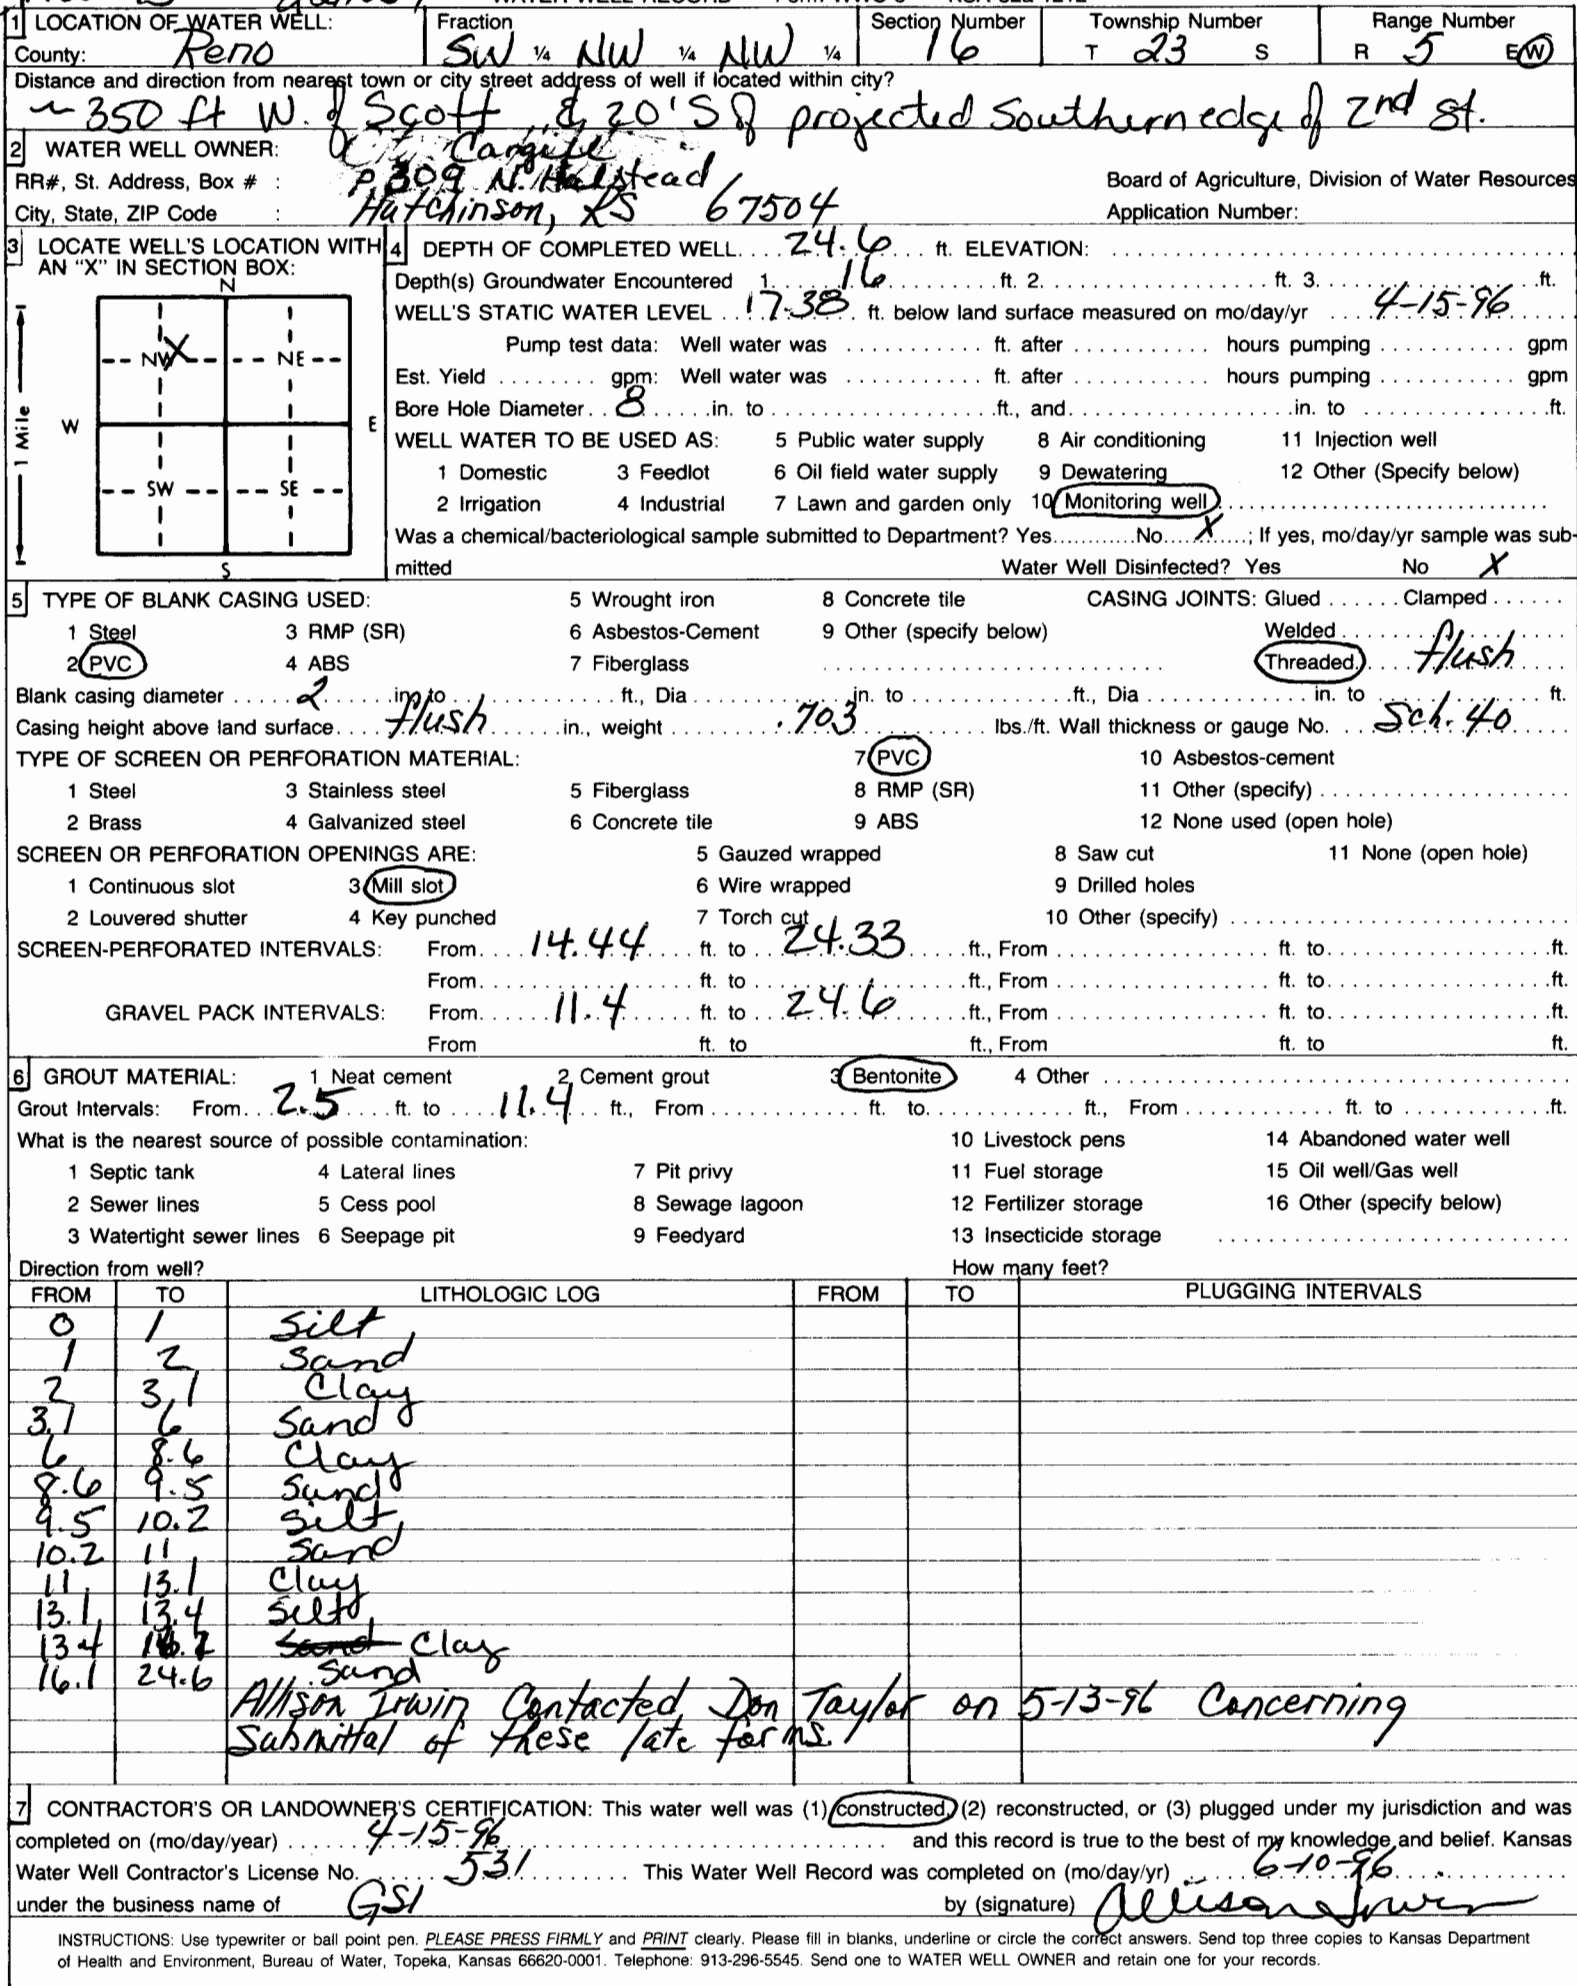 WATER WELL RECORD Form WWC-5 KSA 82a-1212
1 LOCATION OF WATER WELL: Fraction Section Number Township Number Range Number
County: Reno SW ¼ NW ¼ NW ¼ 16 T 23 S R 5 E(W)
Distance and direction from nearest town or city street address of well if located within city?
~ 350 ft W. of Scott & 20'S of projected Southern edge of 2nd St.
2 WATER WELL OWNER: Cargill
RR#, St. Address, Box # : 309 N. Halstead Board of Agriculture, Division of Water Resources
City, State, ZIP Code : Hutchinson, KS 67504 Application Number:
3 LOCATE WELL'S LOCATION WITH AN "X" IN SECTION BOX:
N
NW X NE
W E
SW SE
S
1 Mile
4 DEPTH OF COMPLETED WELL.... 24.6 .... ft. ELEVATION: ....
Depth(s) Groundwater Encountered 1. 16 ft. 2. .... ft. 3. .... ft.
WELL'S STATIC WATER LEVEL .. 17.38 .. ft. below land surface measured on mo/day/yr .... 4-15-96
Pump test data: Well water was .... ft. after .... hours pumping .... gpm
Est. Yield .... gpm: Well water was .... ft. after .... hours pumping .... gpm
Bore Hole Diameter.. 8 ....in. to ....ft., and....in. to ....ft.
WELL WATER TO BE USED AS: 5 Public water supply 8 Air conditioning 11 Injection well
1 Domestic 3 Feedlot 6 Oil field water supply 9 Dewatering 12 Other (Specify below)
2 Irrigation 4 Industrial 7 Lawn and garden only 10 Monitoring well ....
Was a chemical/bacteriological sample submitted to Department? Yes....No.... X ....; If yes, mo/day/yr sample was sub-
mitted Water Well Disinfected? Yes No X
5 TYPE OF BLANK CASING USED: 5 Wrought iron 8 Concrete tile CASING JOINTS: Glued ...... Clamped ......
1 Steel 3 RMP (SR) 6 Asbestos-Cement 9 Other (specify below) Welded ....
2 PVC 4 ABS 7 Fiberglass .... Threaded.... flush
Blank casing diameter .... 2 ....in. to ....ft., Dia ....in. to ....ft., Dia ....in. to ....ft.
Casing height above land surface.... flush ....in., weight .... .703 lbs./ft. Wall thickness or gauge No. ... Sch. 40
TYPE OF SCREEN OR PERFORATION MATERIAL: 7 PVC 10 Asbestos-cement
1 Steel 3 Stainless steel 5 Fiberglass 8 RMP (SR) 11 Other (specify) ....
2 Brass 4 Galvanized steel 6 Concrete tile 9 ABS 12 None used (open hole)
SCREEN OR PERFORATION OPENINGS ARE: 5 Gauzed wrapped 8 Saw cut 11 None (open hole)
1 Continuous slot 3 Mill slot 6 Wire wrapped 9 Drilled holes
2 Louvered shutter 4 Key punched 7 Torch cut 10 Other (specify) ....
SCREEN-PERFORATED INTERVALS: From.... 14.44 .... ft. to ... 24.33 ....ft., From .... ft. to....ft.
From.... ft. to ....ft., From .... ft. to....ft.
GRAVEL PACK INTERVALS: From.... 11.4 .... ft. to ... 24.6 ....ft., From .... ft. to....ft.
From ft. to ft., From ft. to ft.
6 GROUT MATERIAL: 1 Neat cement 2 Cement grout 3 Bentonite 4 Other ....
Grout Intervals: From... 2.5 .... ft. to .... 11.4 .. ft., From .... ft. to.... ft., From .... ft. to ....ft.
What is the nearest source of possible contamination: 10 Livestock pens 14 Abandoned water well
1 Septic tank 4 Lateral lines 7 Pit privy 11 Fuel storage 15 Oil well/Gas well
2 Sewer lines 5 Cess pool 8 Sewage lagoon 12 Fertilizer storage 16 Other (specify below)
3 Watertight sewer lines 6 Seepage pit 9 Feedyard 13 Insecticide storage ....
Direction from well? How many feet?
FROM TO LITHOLOGIC LOG FROM TO PLUGGING INTERVALS
0 1 Silt
1 2 Sand
2 3.7 Clay
3.7 6 Sand
6 8.6 Clay
8.6 9.5 Sand
9.5 10.2 Silt
10.2 11 Sand
11 13.1 Clay
13.1 13.4 Silt
13.4 Sand Clay
16.1 24.6 Sand
Allison Irwin Contacted Don Taylor on 5-13-96 Concerning
Submittal of these late forms.
7 CONTRACTOR'S OR LANDOWNER'S CERTIFICATION: This water well was (1) constructed, (2) reconstructed, or (3) plugged under my jurisdiction and was
completed on (mo/day/year) .... 4-15-96 .... and this record is true to the best of my knowledge and belief. Kansas
Water Well Contractor's License No. .... 531 .... This Water Well Record was completed on (mo/day/yr) .... 6-10-96 ....
under the business name of GSI by (signature) Allison Irwin
INSTRUCTIONS: Use typewriter or ball point pen. PLEASE PRESS FIRMLY and PRINT clearly. Please fill in blanks, underline or circle the correct answers. Send top three copies to Kansas Department
of Health and Environment, Bureau of Water, Topeka, Kansas 66620-0001. Telephone: 913-296-5545. Send one to WATER WELL OWNER and retain one for your records.